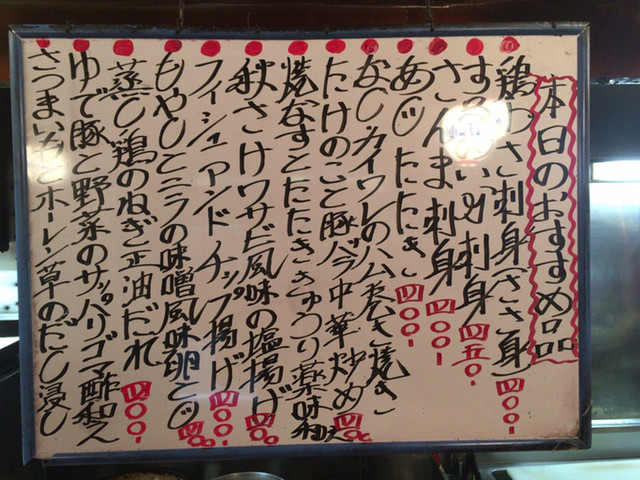 本日のおすすめ品
鶏わさ刺身(ささ身)四〇〇-
するめいか刺身四五〇-
さんま刺身四〇〇-
あじたたき四〇〇-
なしカイワレのハム巻き焼き
たけのこと豚バラ中華炒め四〇〇
焼なすとたたききゅうり薬味和え
秋さけワサビ風味の塩揚げ四〇〇-
フィシュアンドチップ揚げ四〇〇-
もやしとニラの味噌風味卵とじ四〇〇
蒸し鶏のねぎ正油だれ四〇〇-
ゆで豚と野菜のサッパリゴマ酢和え
さつまいもとホーレン草のだし浸し